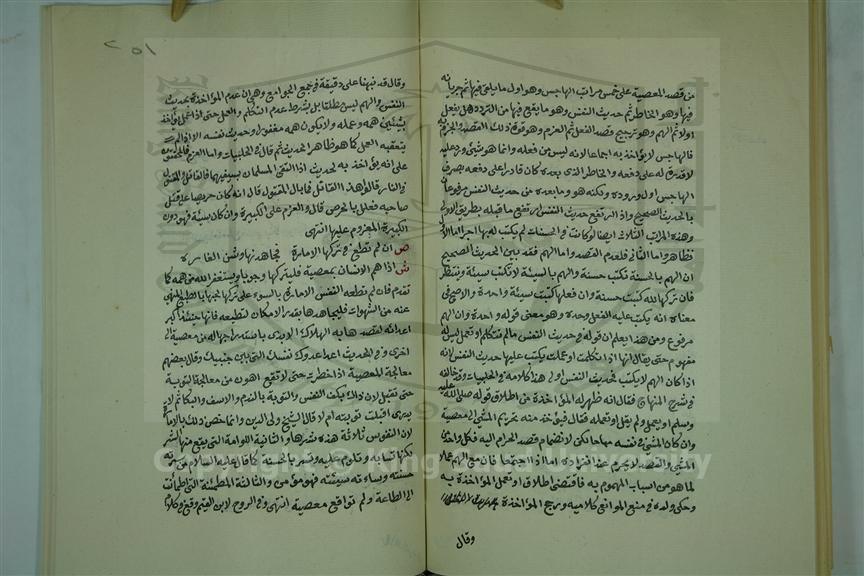 من قصد المعصية على خمس مراتب الهاجس وهو اول ما يلقى فيها ثم جريانه
فيها وهو الخاطر ثم حديث النفس وهو ما يقع فيها من التردد هل يفعل
اولا ثم الهم وهو ترجيح قصد الفعل ثم العزم وهو قوة ذلك القصد والجزم به
فالهاجس لا يؤاخذ به اجماعا لانه ليس من فعله وانما هو شئ ورد عليه
لا قدرة له على دفعه والخاطر الذي بعده كان قادرا على دفعه بصرف
الهاجس اول وروده ولكنه هو وما بعده من حديث النفس مرفوعان
بالحديث الصحيح واذا ارتفع حديث النفس ارتفع ما قبله بطريق الاولى
وهذه المراتب الثلاثة ايضا لو كانت في الحسنات لم يكتب له بها اجر اما الاول
فظاهر واما الثاني فلعدم القصد واما الهم فقد بين الحديث الصحيح
ان الهم بالحسنة تكتب حسنة والهم بالسيئة لا تكتب سيئة وننتظر
فان تركها لله كتبت حسنة وان فعلها كتبت سيئة واحدة والاصح في
معناه انه يكتب عليه الفعل وحده وهو معنى قوله واحدة وان الهم
مرفوع ومن هذا يعلم ان قوله في حديث النفس ما لم تتكلم او تعمل ليس له
مفهوم حتى يقال انها اذا تكلمت او عملت يكتب عليها حديث النفس لانه
اذا كان الهم لا يكتب فحديث النفس اولى هذا كلامه في الحلبيات وقد خالفه
في شرح المنهاج فقال انه ظهر له المؤاخذة من اطلاق قوله صلى الله عليه
وسلم او يعمل ولم يقل او تعمله فقال فيؤخذ منه تحريم المشي الى معصية
وان كان المشي في نفسه مباحا لكن لانضمام قصد الحرام اليه فكل واحد من
المشي والقصد لا يحرم عند انفراده اما اذا اجتمعا فان مع الهم عملا
لما هو من اسباب المهموم به فاقتضى اطلاق او تعمل المؤاخذة به
وحكى ولده في منع الموانع كلاميه ورجح المؤاخذة
وقال
٢٥١
وقال قد نبهنا على دقيقة في جمع الجوامع وهي ان عدم المؤاخذة بحديث
النفس والهم ليس مطلقا بل بشرط عدم التكلم والعمل حتى اذا عمل يؤاخذ
بشيئين همه وعمله ولا يكون همه مغفورا وحديث نفسه الا اذا لم
يتعقبه العمل كما هو ظاهر الحديث ثم قال في الحلبيات واما العزم فالمحققون
على انه يؤاخذ به لحديث اذا التقى المسلمان بسيفيهما فالقاتل والمقتول
في النار قالوا هذا القاتل فما بال المقتول قال انه كان حريصا على قتل
صاحبه فعلل بالحرص قال والعزم على الكبيرة وان كان سيئة فهو دون
الكبيرة المعزوم عليها انتهى
ص ان لم تطع في تركها الامارة فجاهدنها وشن الغاره
ش اذا هم الانسان بمعصية فليتركها وجوبا ويستغفر الله من همه كما
تقدم فان لم تطعه النفس الامارة بالسوء على تركها لحبها بالطبع للمنهي
عنه من الشهوات فليجاهدها بقدر الامكان لتطيعه فانها حينئذ اكبر
اعدائه لقصدها به الهلاك الابدي باستدراجها له من معصية الى
اخرى وفي الحديث اعدا عدوك نفسك التي بين جنبيك وقال بعضهم
معالجة المعصية اذا خطرت حتى لا تقع اهون من معالجة التوبة
حتى تقبل لان ذلك بكف النفس والتوبة بالندم والاسف والبكا ثم لا
يدري اقبلت توبته ام لا قال الشيخ ولي الدين وانما خص ذلك بالامارة
لان النفوس ثلاثة هذه شرها والثانية اللوامة التي يقع منها الشر
لكنها تساء به وتلوم عليه وتسر بالحسنة كما قال عليه السلام من سرته
حسنته وساءته سيئته فهو مؤمن والثالثة المطمئنة التي اطمأنت
الى الطاعة ولم تواقع معصية انتهى وفي الروح لابن القيم وقع في كلام
Copyright © King Saud University